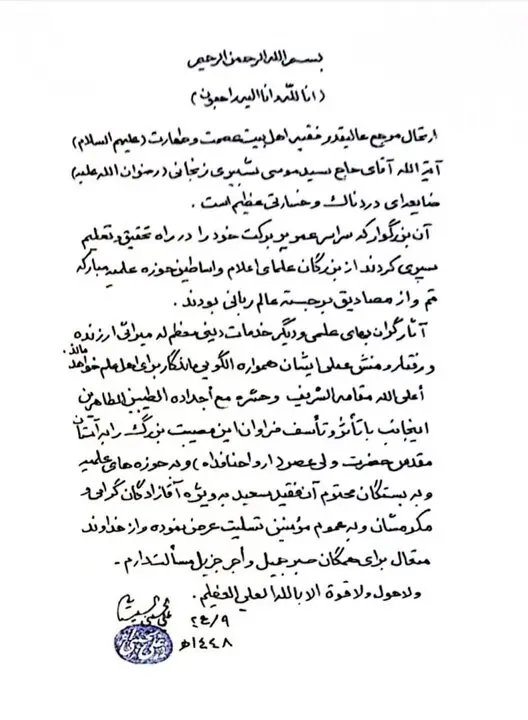 بسم الله الرحمن الرحیم
(انا لله وانا الیه راجعون)
ارتحال مرجع عالیقدر فقیه اهل بیت عصمت و طهارت (علیهم السلام)
آیة الله آقای حاج سید موسی شبیری زنجانی (رضوان الله علیه)
ضایعه‌ای دردناک و خسارتی عظیم است .
آن بزرگوار که سراسر عمر پر برکت خود را در راه تحقیق و تعلیم
سپری کردند از بزرگان علمای اعلام و اساطین حوزه علمیه مبارکه
قم و از مصادیق برجسته عالم ربانی بودند .
آثار گران بهای علمی و دیگر خدمات دینی معظم له میراثی ارزنده
و رفتار و منش عملی ایشان همواره الگویی ماندگار برای اهل علم خواهد ماند.
أعلی الله مقامه الشریف وحشره مع أجداده الطیبین الطاهرین
اینجانب با تأثر و تأسف فراوان این مصیبت بزرگ را به آستان
مقدس حضرت ولی عصر (ارواحنا فداه) و به حوزه های علمیه
و به بستگان محترم آن فقید سعید به ویژه آقازادگان گرامی و
مکرمشان و به عموم مؤمنین تسلیت عرض نموده و از خداوند
متعال برای همگان صبر جمیل و أجر جزیل مسألت دارم .
ولا حول ولا قوة الا بالله العلي العظیم .
علي الحسیني السیستاني
٢٤/٩
١٤٤٨هـ